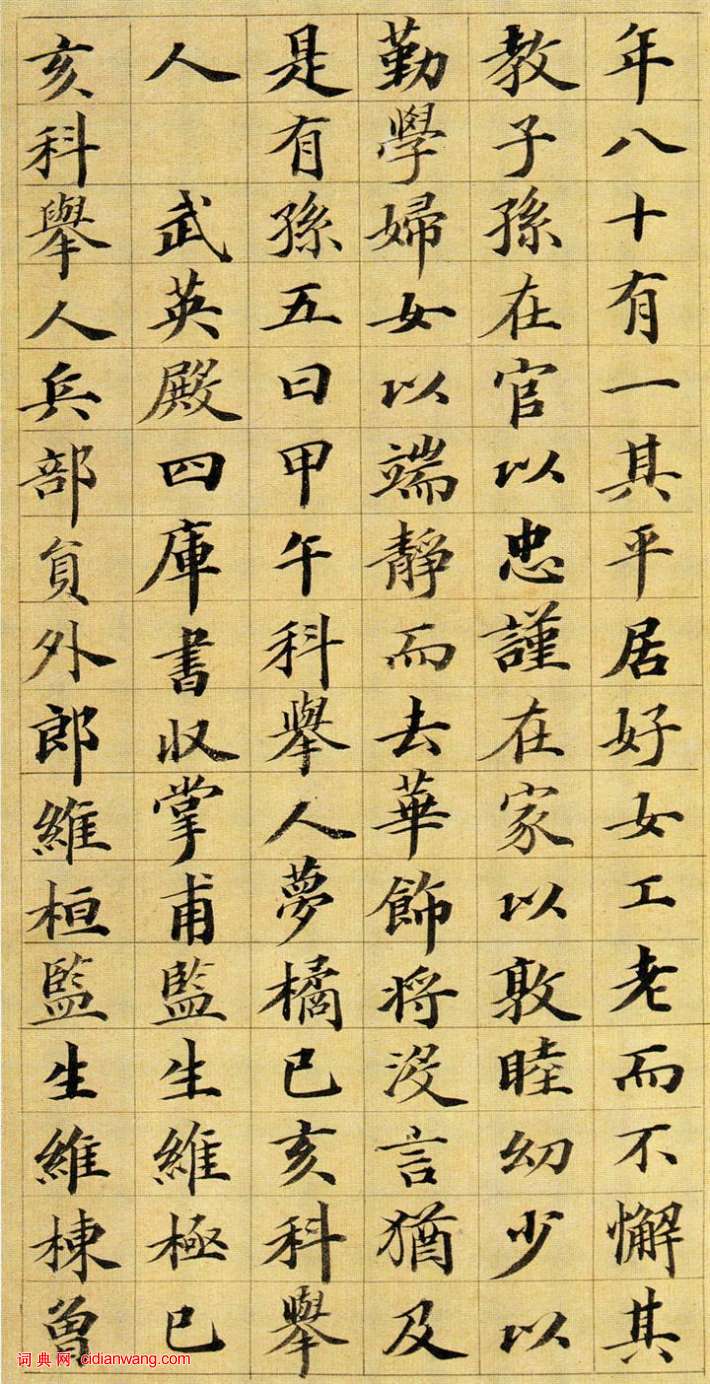 年八十有一其平居好女工老而不懈其
教子孫在官以忠謹在家以敦睦幼少以
勤學婦女以端靜而去華飾將没言猶及
是有孫五曰甲午科舉人夢橘已亥科舉
人 武英殿四庫書收掌甫監生維極已
亥科舉人兵部員外郎維桓監生維棟曾
词典网 cidianwang.com